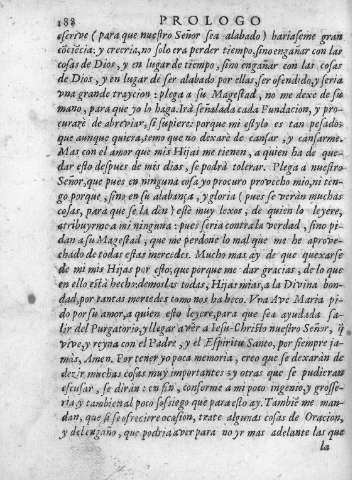 188 PROLOGO
escrive (para que nuestro Señor sea alabado) hariaseme gran
cōciēcia: y creeria, no solo era perder tiempo, sino engañar con las
cosas de Dios, y en lugar de tiempo, sino engañar con las cosas
de Dios, y en lugar de ser alabado por ellas, ser ofendido, y seria
vna grande trayción: plega a su Magestad, no me dexe de su
mano, para que yo lo haga. Irá señalada cada Fundacion, y pro-
curarè de abreviar, si supiere: porque mi estylo es tan pesado:
que aunque quiera, temo que no dexarè de cansar, y cansarme.
Mas con el amor que mis Hijas me tienen, a quien ha de que-
dar esto despues de mis dias, se podrà tolerar. Plega a nuestro
Señor, que pues en ninguna cosa yo procuro provecho mio, ni ten-
go porque, sino en sù alabança, y gloria (pues se verán muchas
cosas, para que se la den) esté muy lexos, de quien lo leyere,
atribuyrnoe a mi ninguna: pues seria contra la verdad, sino pi-
dan a su Magestad, que me perdone lo mal que me he aprove-
chado de todas estas mercedes. Mucho mas ay de que quexarse
de mi mis Hijas por esto, que porque me dar gracias, de lo que
en ello està hecho: demoslas todas, Hijas mias, a la Divina bon-
dad, por tantas mercedes como nos ha heco. Vna Ave Maria pi-
do por su amor, a quien esto leyere, para que sea ayudada sa-
lir del Purgatorio, y llegar a vèr a Iesu-Christo nuestro Señor, q̃
vive, y reyna con el Padre, y el Espiritu Santo, por siempre ja-
màs, Amen. Por tener yo poca memoria, creo que se dexarán de
dezir muchas cosas muy importantes: y otras que se pudieran
escusar, se diràn: en fin, conforme a mi poco ingenio, y grosse-
ria, y tambien al poco sossiego que para esto ay. Tambiē me man-
dan, que si se ofreciere ocasion, trate algunas cosas de Oracion,
y del engaño, que podria aver para no yr mas adelante las que
la